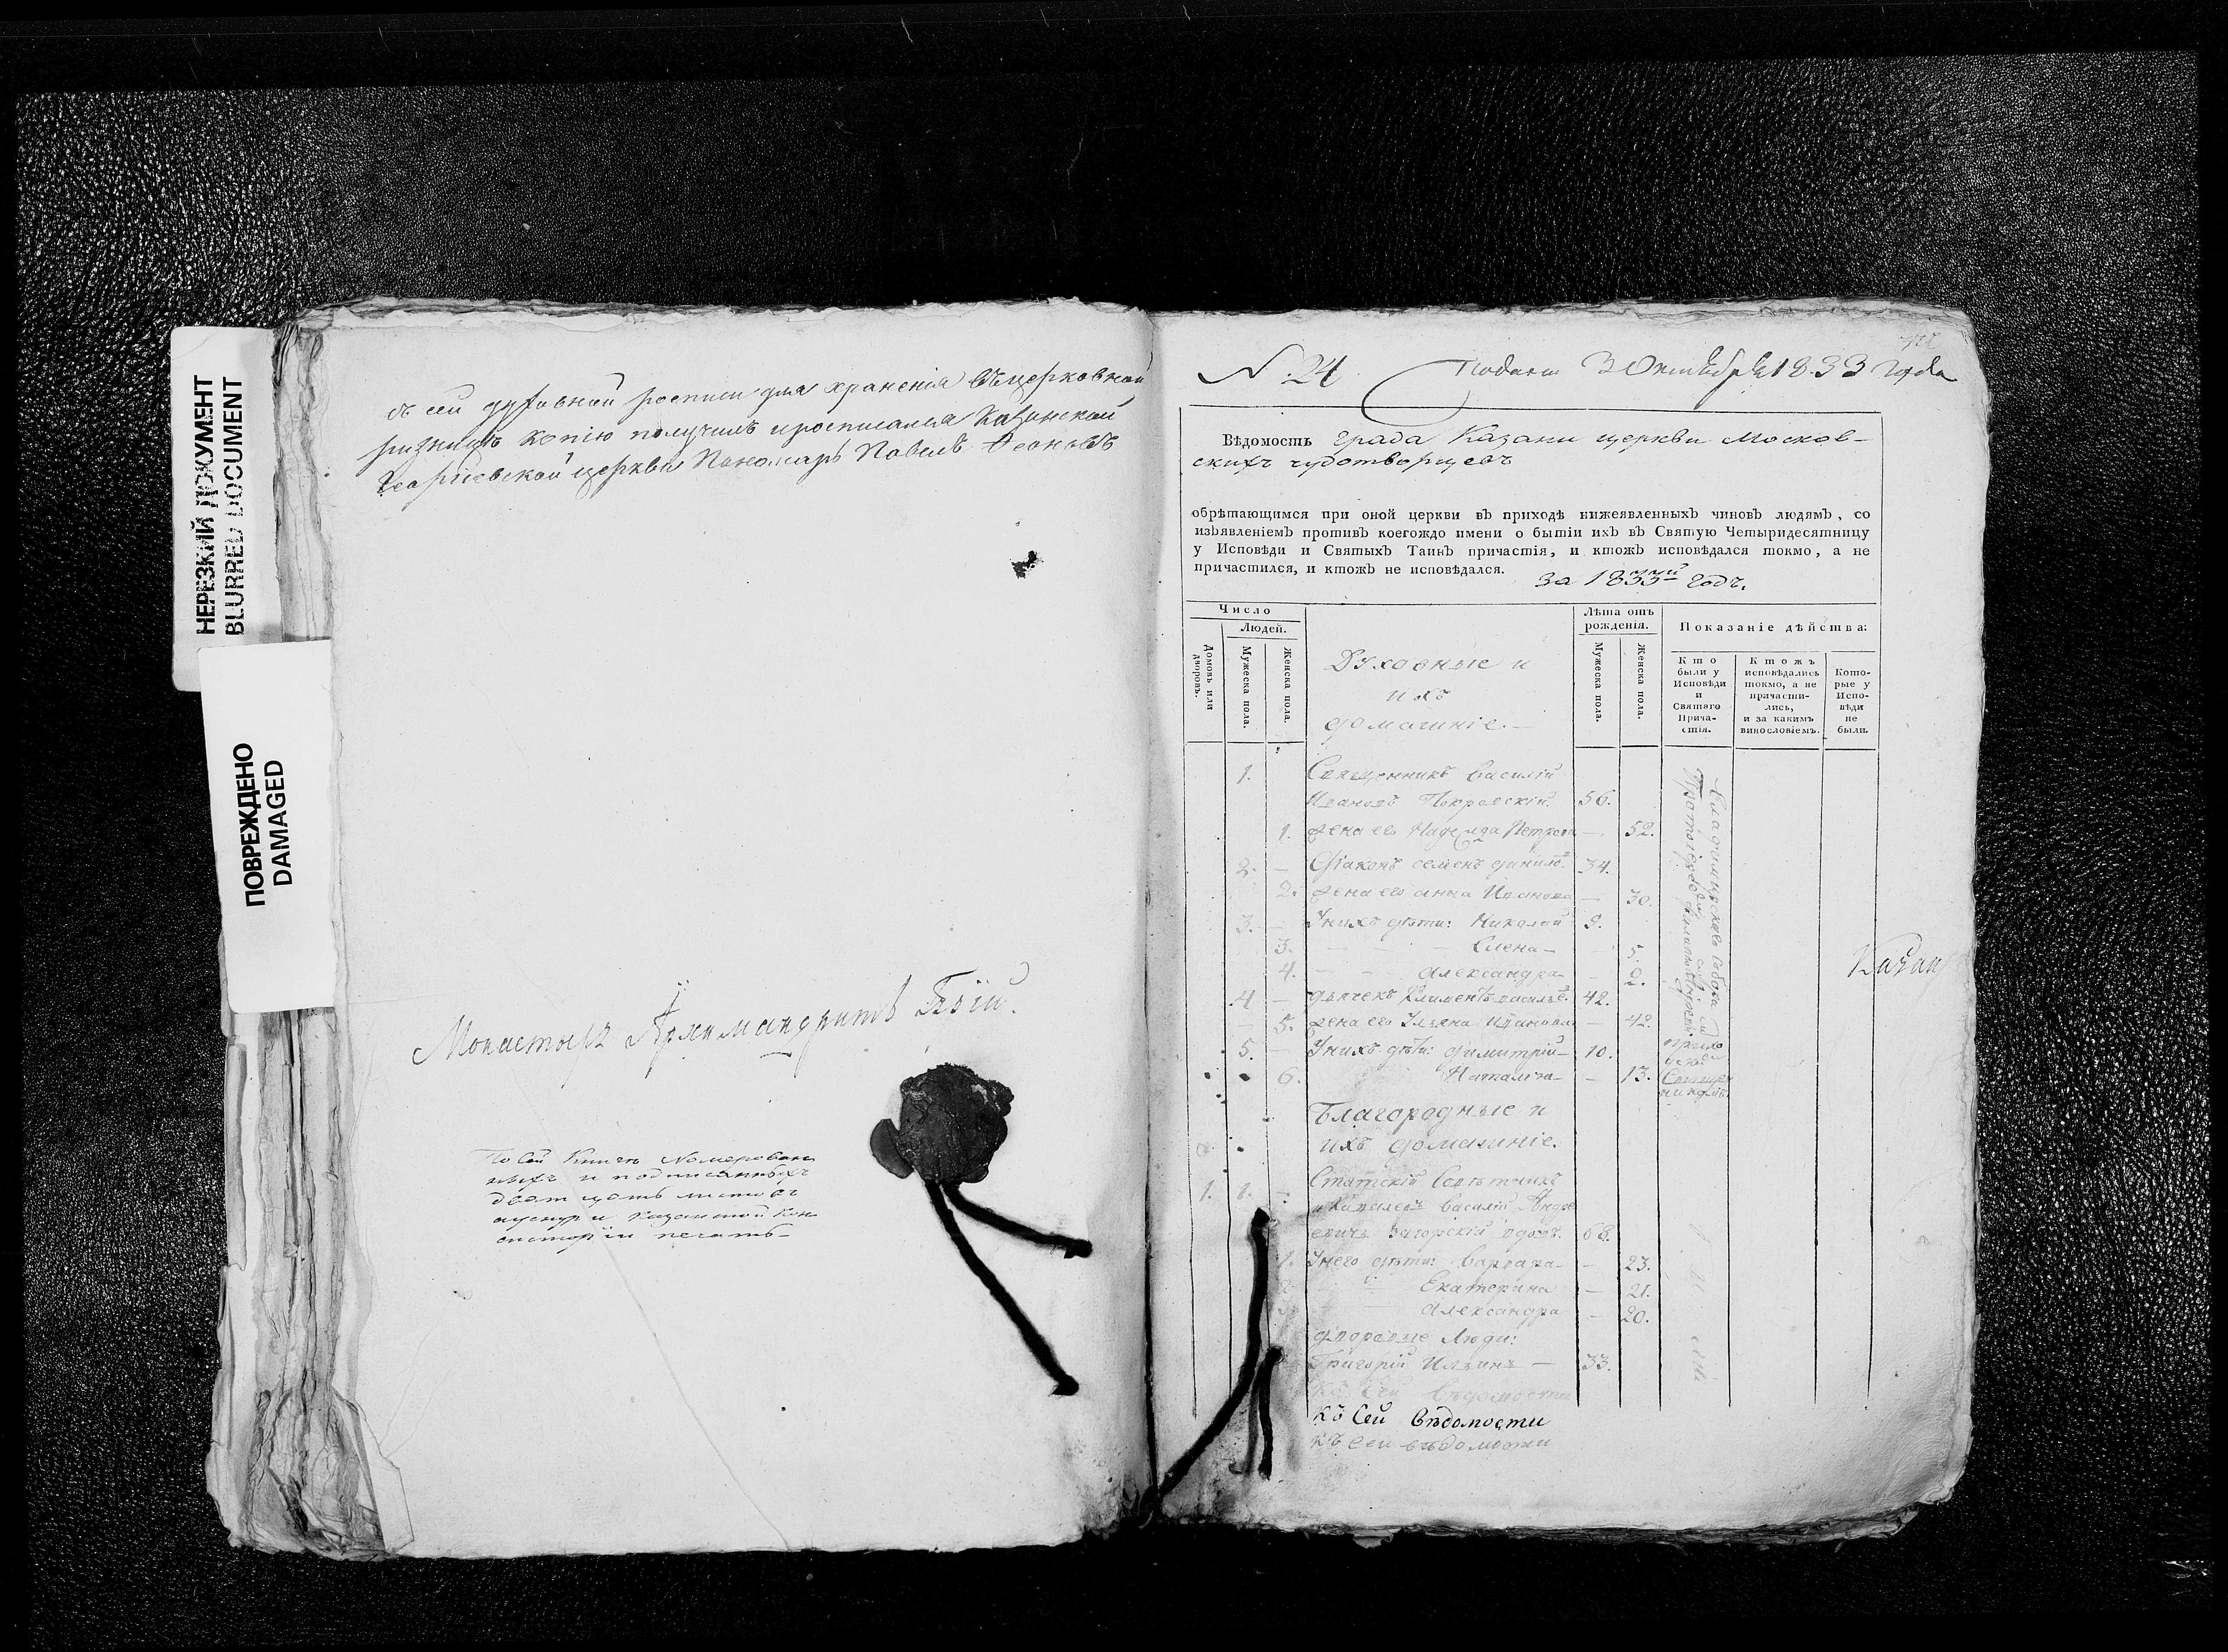 НЕРЕЗКИЙ ДОКУМЕНТ
BLURRED DOCUMENT
ПОВРЕЖДЕНО
DAMAGED
съ сей духовной росписи для храненія въ церковной
ризницѣ копію получилъ и росписался Казанской
Георгіевской церкви Пономарь Павелъ
Монастыря Архимандритъ Гавріилъ
По сей Книгѣ Номерован
ныхъ и подписанныхъ
листовъ
Казанской Кон
систоріи печать
N. 24 Подана 3 Октября 1833 года
Вѣдомость града Казани церкви Москов-
скихъ чудотворцевъ
обрѣтающимся при оной церкви въ приходѣ нижеявленныхъ чиновъ людямъ, со
изъявленіемъ противъ коегождо имени о бытіи ихъ въ Святую Четыридесятницу
у Исповѣди и Святыхъ Таинъ причастія, и ктожъ исповѣдался токмо, а не
причастился, и ктожъ не исповѣдался. за 1833й годъ.
Число
Людей.
Домовъ или дворовъ.
Мужеска пола.
Женска пола.
Духовные и
ихъ
домашніе.
Лѣта отъ
рожденія.
Мужеска пола.
Женска пола.
Показаніе дѣйства:
Кто
были у
Исповѣди
и
Святаго
Прича-
стія.
Ктожъ
исповѣдались
токмо, а не
причасти-
лись,
и за какимъ
винословіемъ.
Кото-
рые у
Испо-
вѣди
не
были.
1. Священникъ Василій
Ивановъ Покровскій 56.
1. Жена его Надежда Петрова — 52.
2. — Діаконъ Семенъ Данил. 34.
2. Жена его Анна Иванова — 30.
3. — У нихъ дѣти: Николай 9.
3. — — — Елена — — 5.
4. — — Александра — — 2.
4 — Дьячекъ Климентъ Василье. 42.
— 5. Жена его Ульяна Иванова — 42.
5. — У нихъ дѣти: Димитрій — 10.
6. Наталья — — 13.
Благовѣщенскаго Собора
Протоіерей
Казан
Благородные и
ихъ домашніе.
1. 1. — Статскій Совѣтникъ
и Кавалеръ Василій Андре
евичъ Загорскій вдовъ. 68.
1. У него дѣти: Варвара — — 23.
2. Екатерина — 21.
3. Александра — 20.
Дворовые Люди:
Григорій Ильинъ — 33.
Къ сей Вѣдомости
Къ Сей Вѣдомости
Къ сей вѣдомости